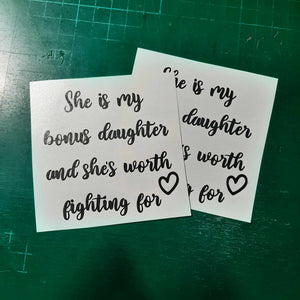 She is my
bonus daughter
and she's worth
fighting for
She is my
daughter
s worth
for